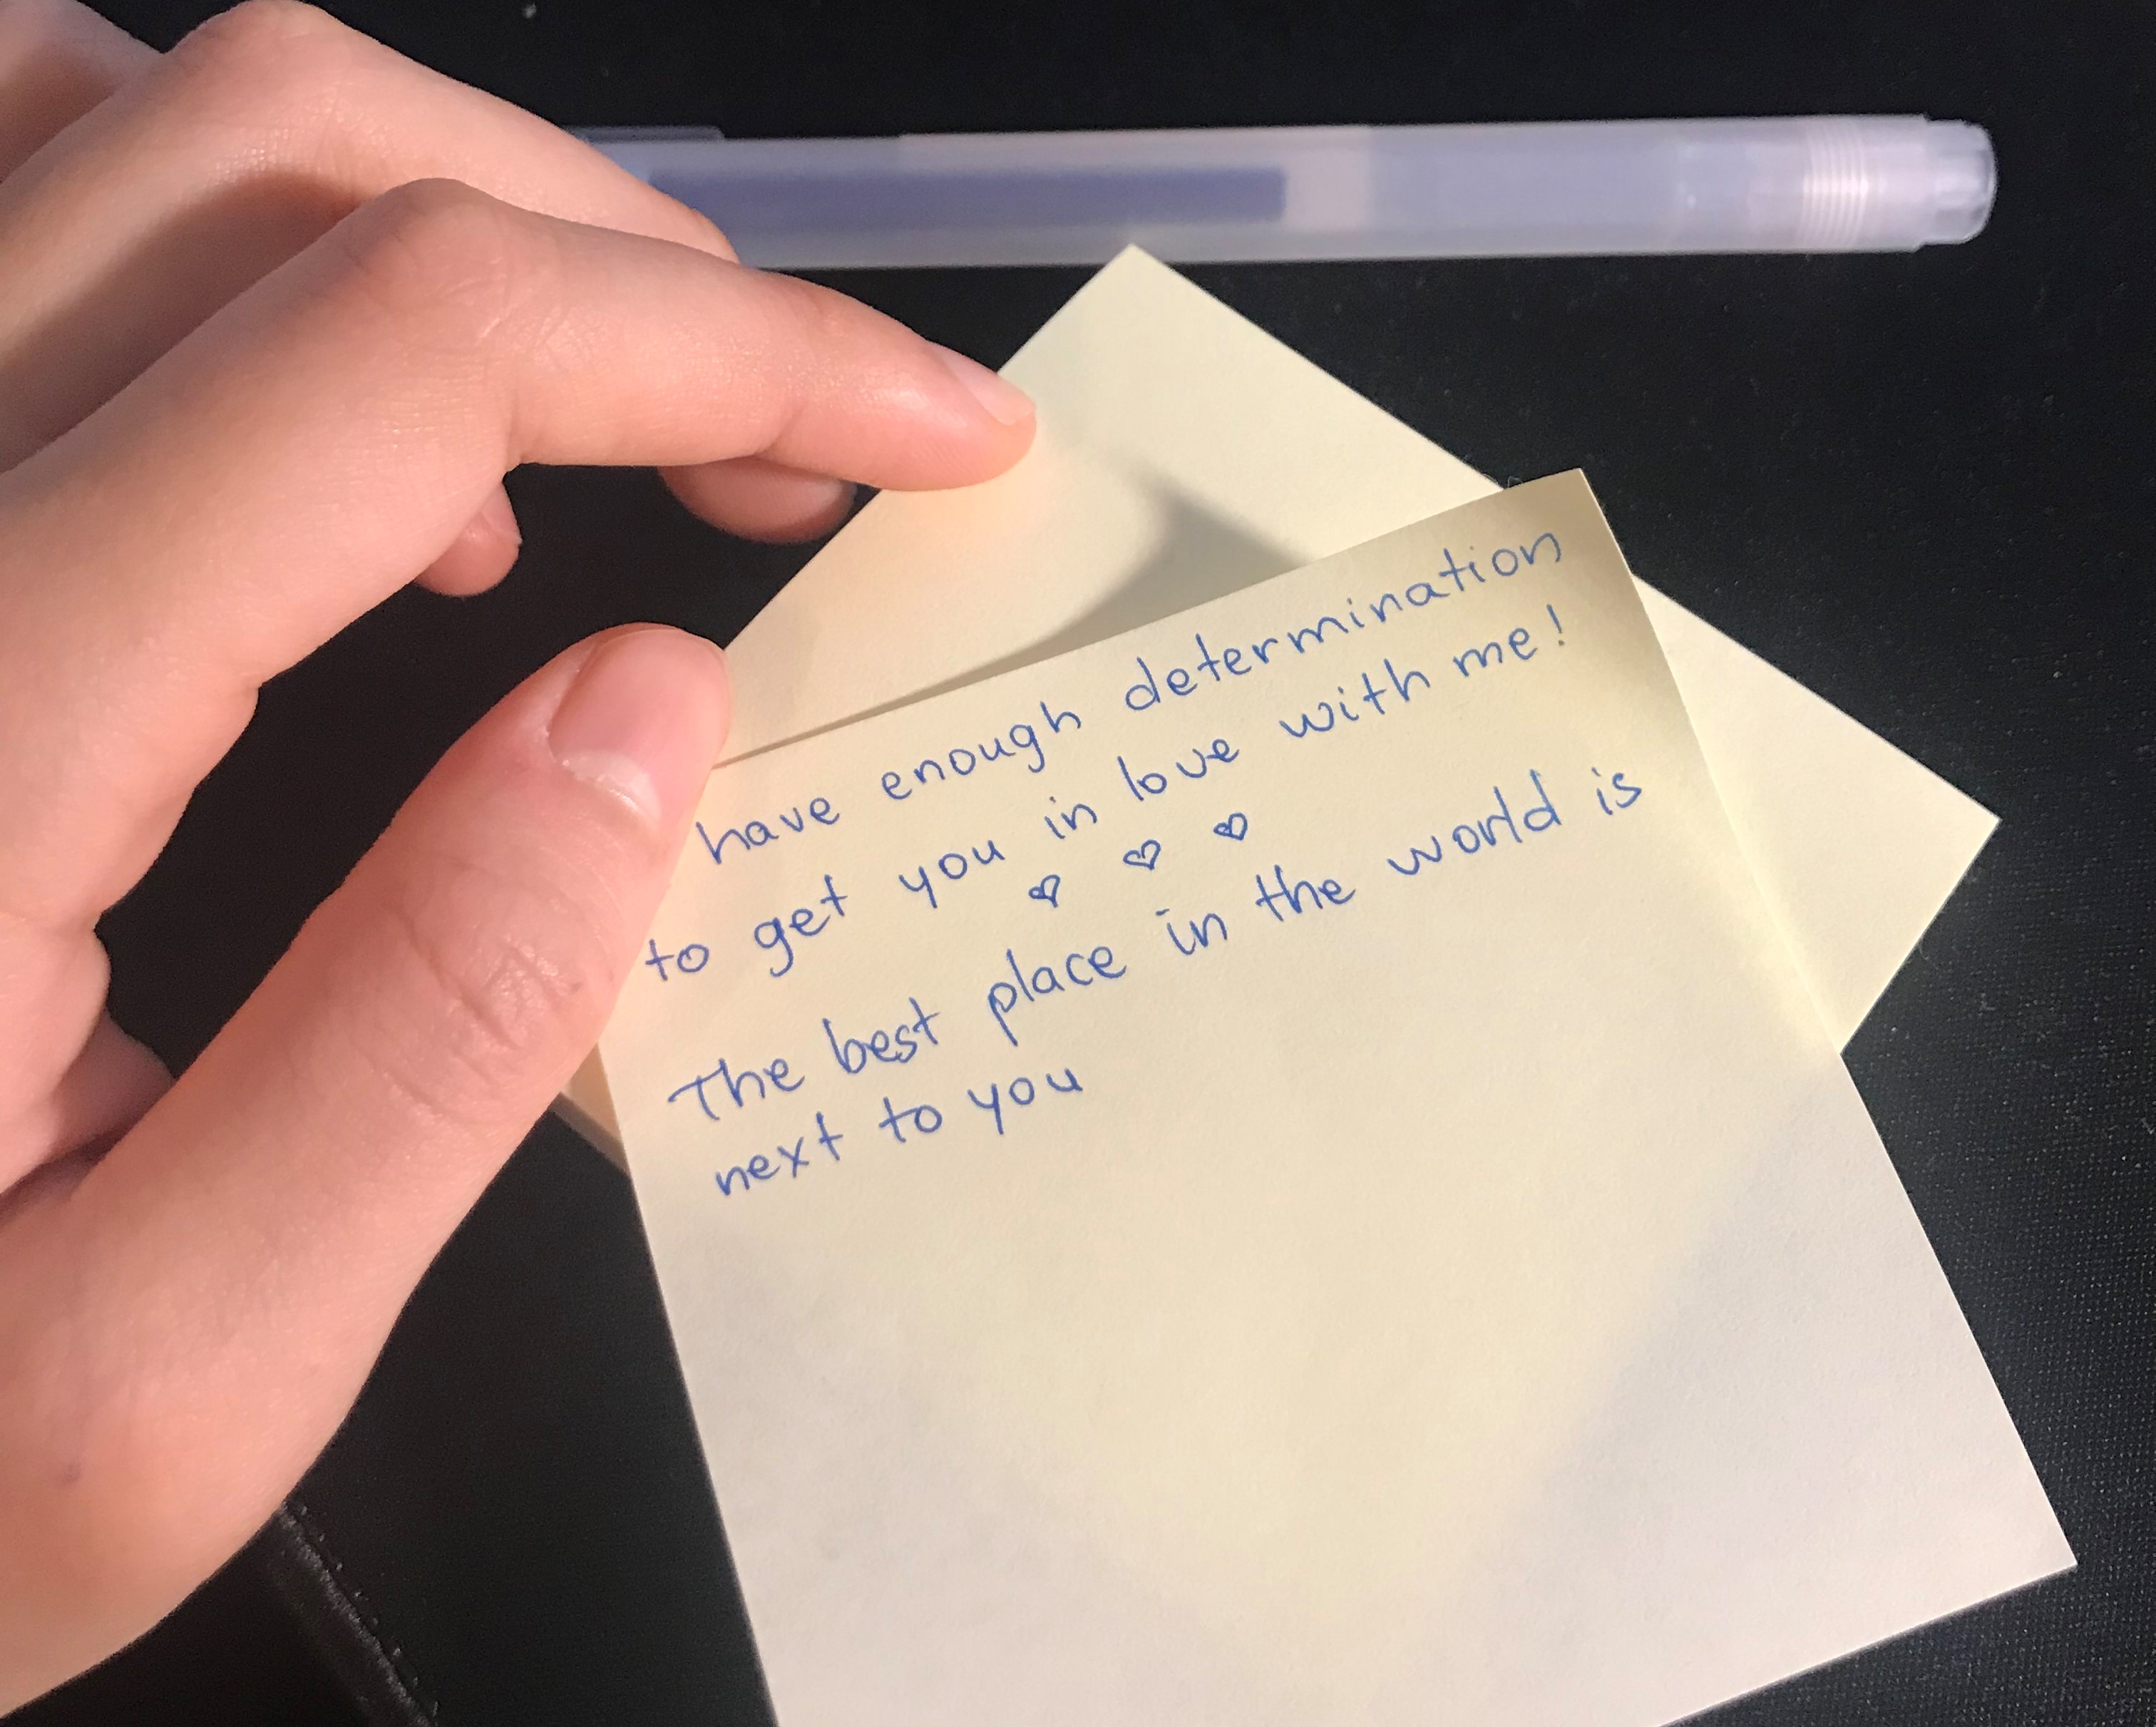 have enough determination
to get you in love with me!
♡ ♡ ♡
The best place in the world is
next to you